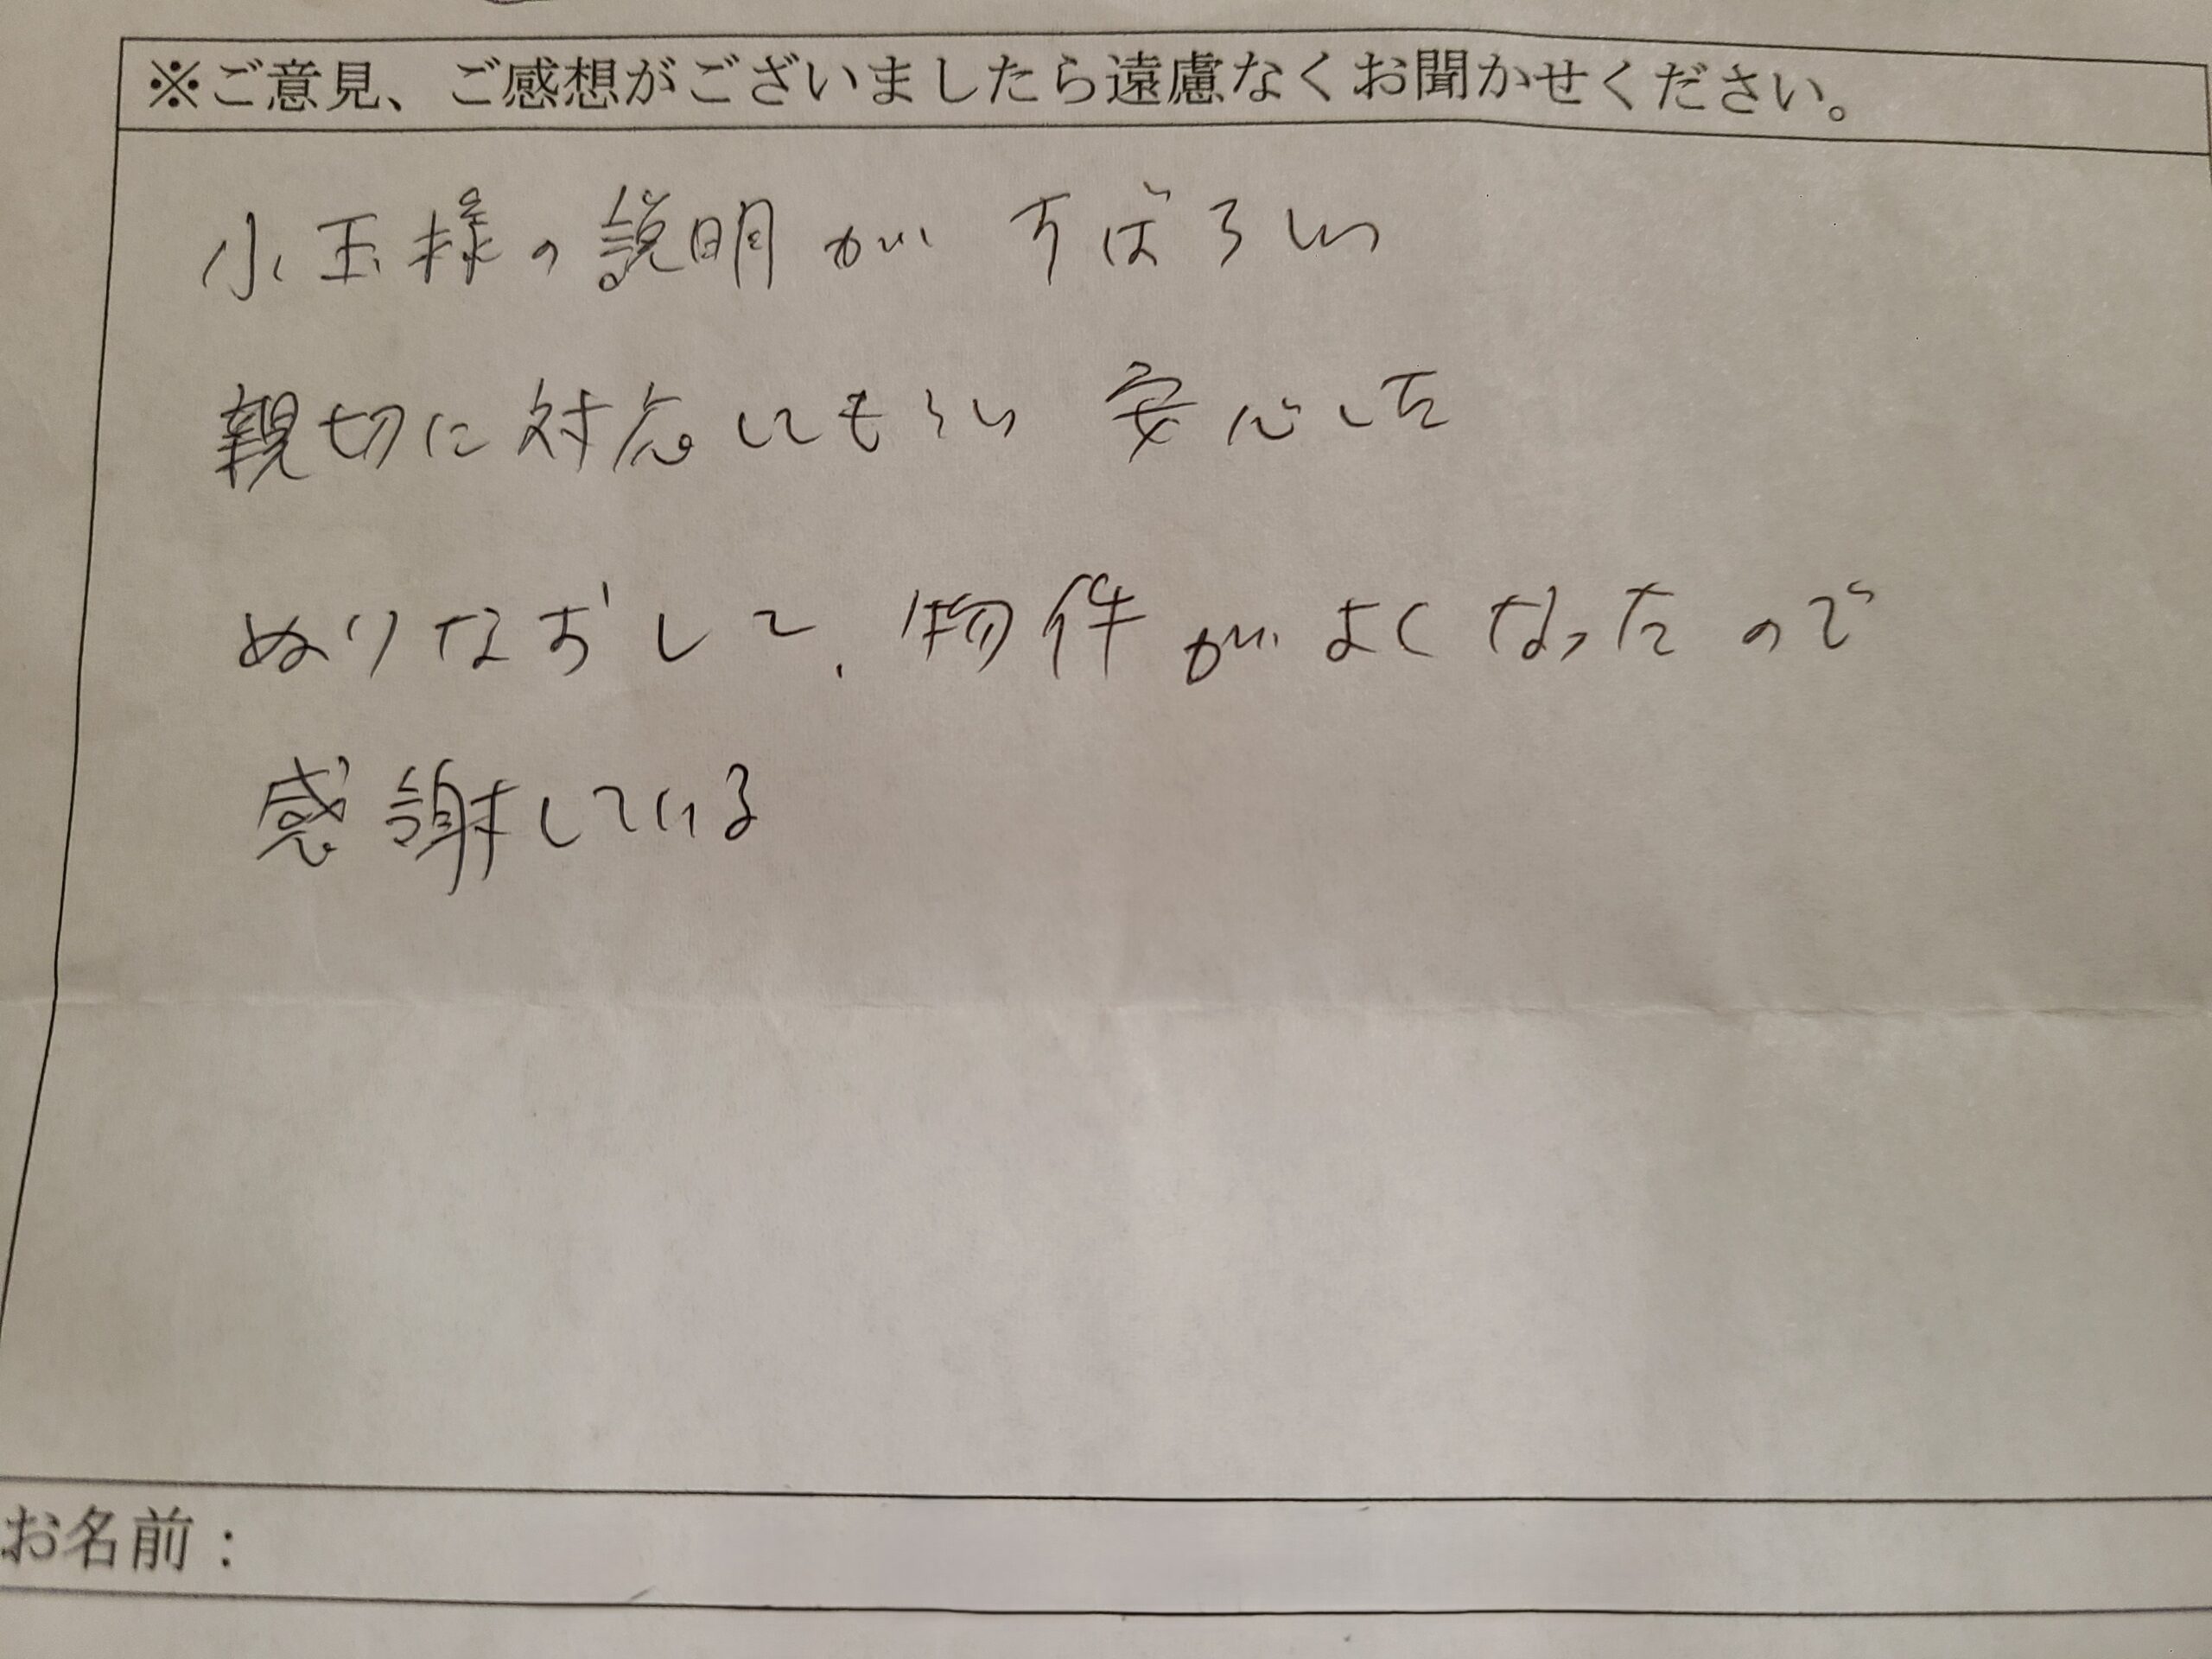 ※ご意見、ご感想がございましたら遠慮なくお聞かせください。
小玉様の説明が すばらしい
親切に対応してもらい 安心した
ぬりなおして、物件がよくなったので
感謝している
お名前：